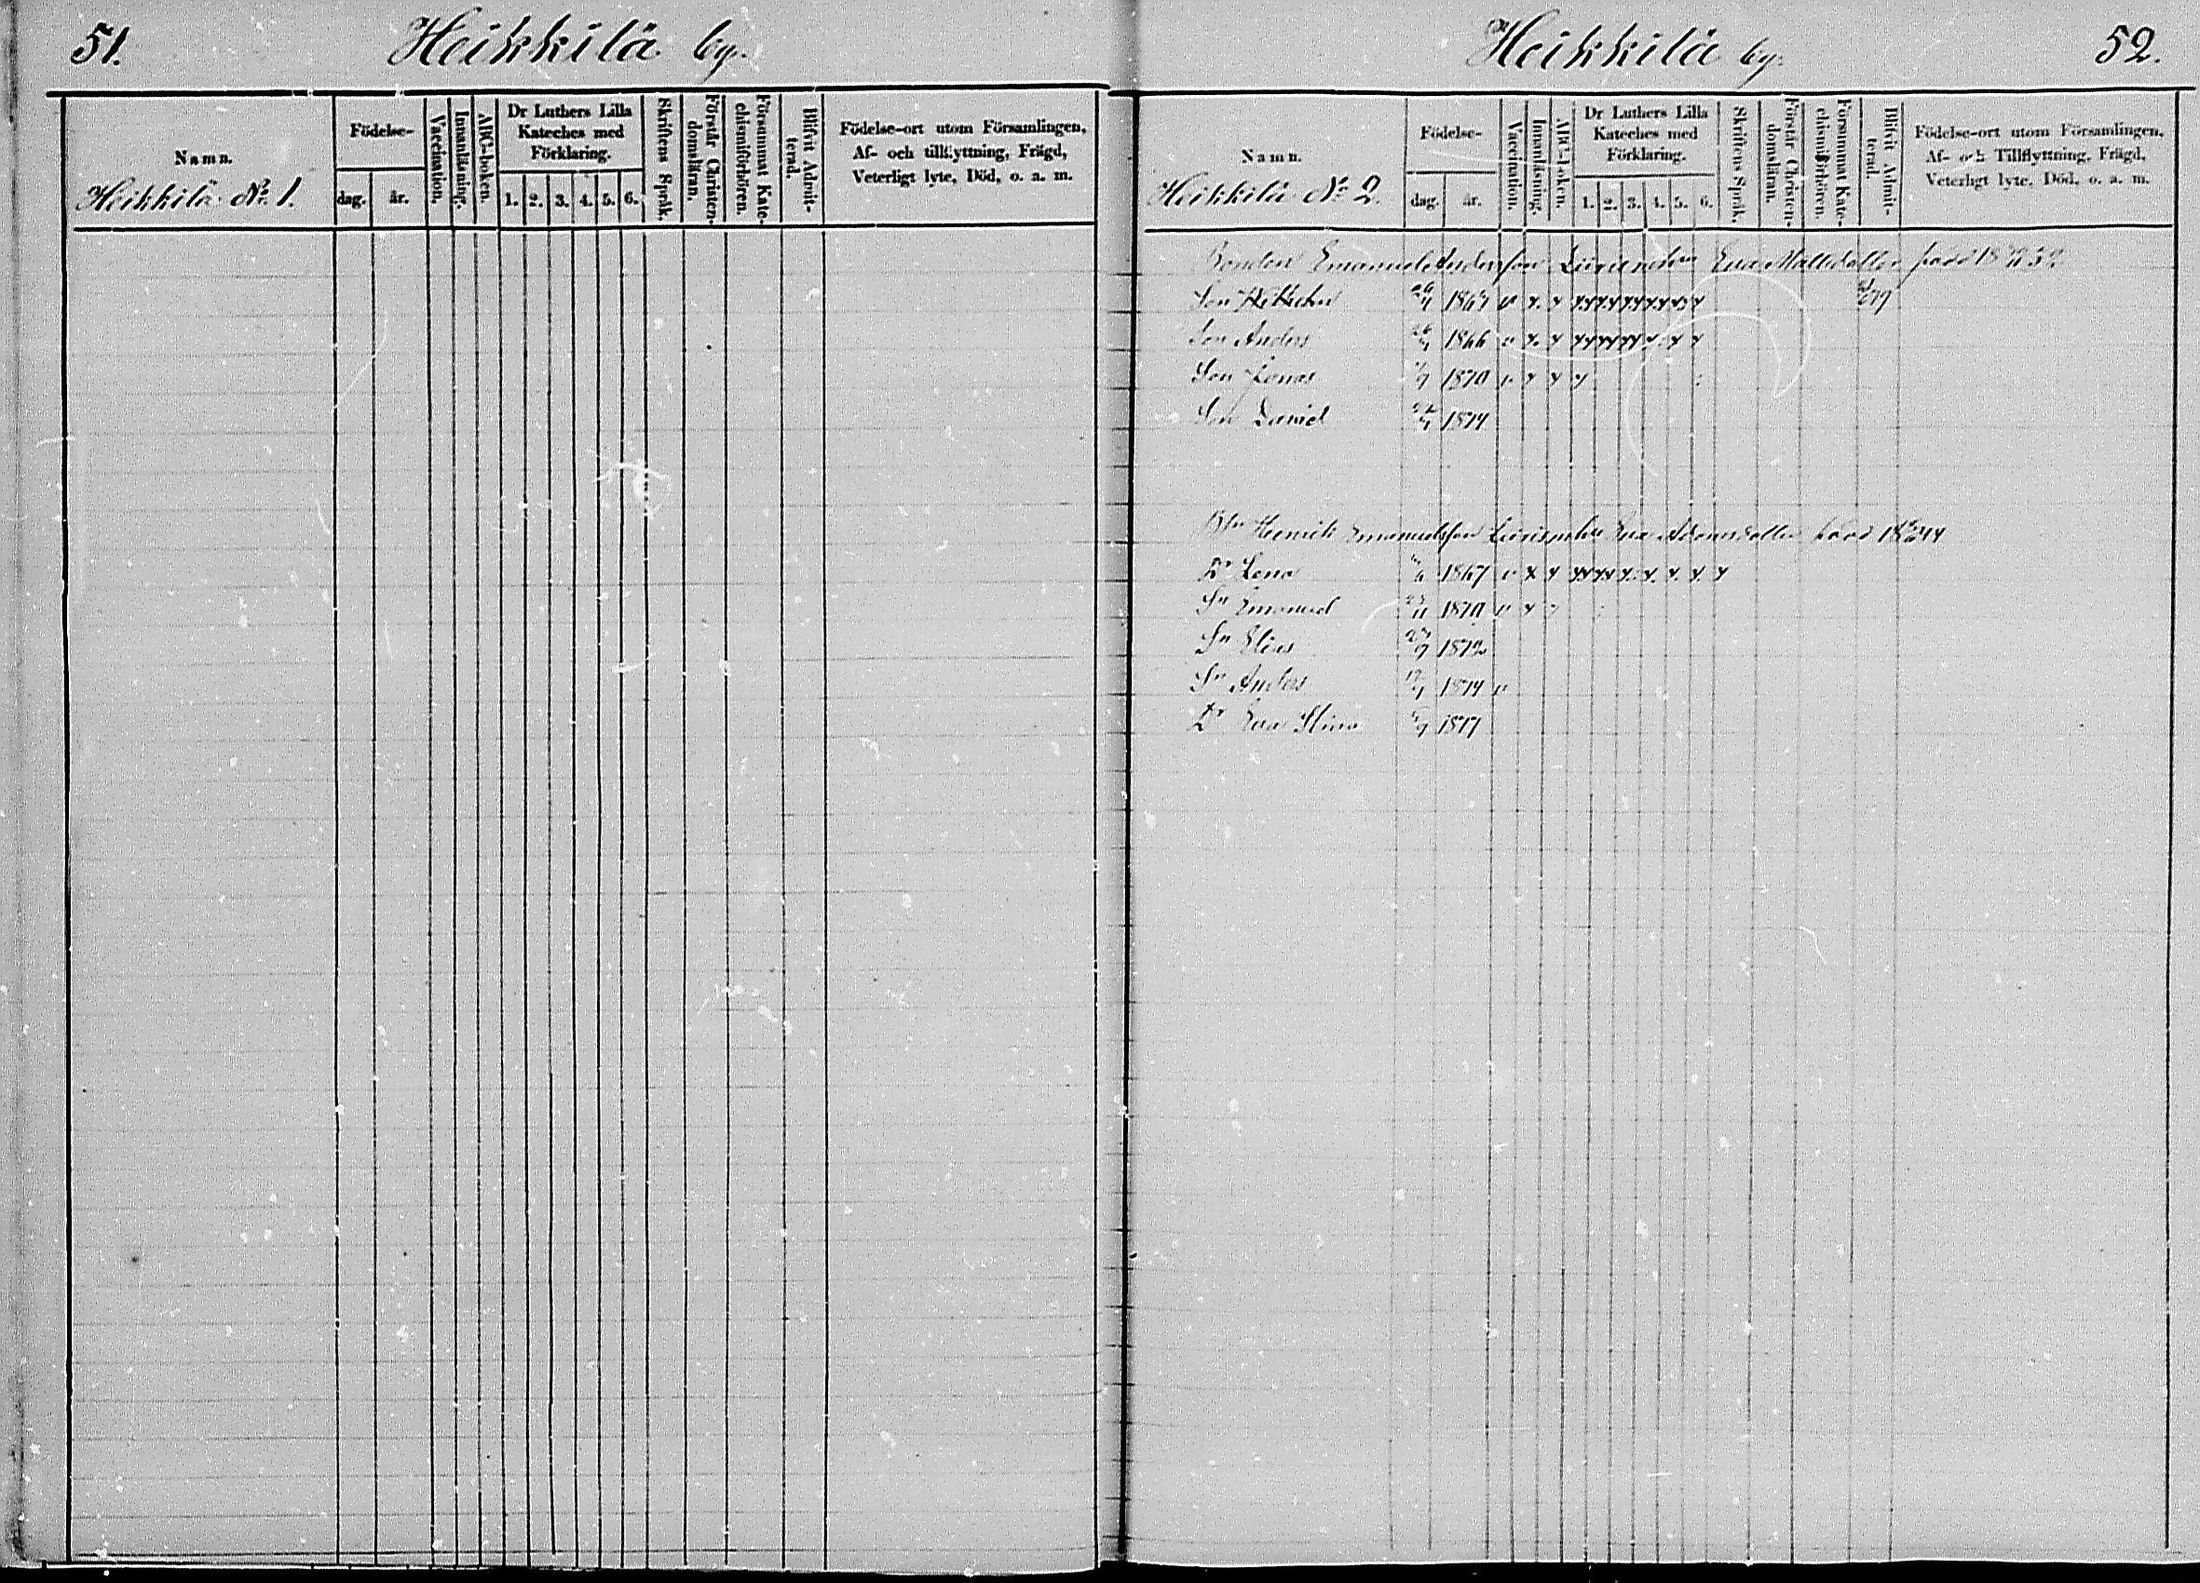 51. Heikkilä by.
Namn.
Heikkilä No 1.
Födelse-
dag. år.
Vaccination.
Innanläsning.
ABC-boken.
Dr Luthers Lilla
Kateches med
Förklaring.
1. 2. 3. 4. 5. 6.
Skriftens Språk.
Förstår Christen-
domsläran.
Försummat Kate-
chismiförhören.
Blifvit Admit-
terad.
Födelse-ort utom Församlingen,
Af- och tillflyttning, Frägd,
Veterligt lyte, Död, o. a. m.
Heikkilä by. 52.
Namn.
Heikkilä No 2.
Födelse-
dag. år.
Vaccination.
Innanläsning.
ABC-boken.
Dr Luthers Lilla
Kateches med
Förklaring.
1. 2. 3. 4. 5. 6.
Skriftens Språk.
Förstår Christen-
domsläran.
Försummat Kate-
chismiförhören.
Blifvit Admit-
terad.
Födelse-ort utom Församlingen,
Af- och Tillflyttning, Frägd,
Veterligt lyte, Död, o. a. m.
Bonden Emanuel Andersson Eva
Son
Son Anders 1866
Son Jonas 1870
Son Daniel 1874
Henrik Emanuelsson Eva
Dr Lena 1867
Sn Emanuel 1870
Sn Elias 1872
Sn Anders 1874
Dr Eva Stina 1877